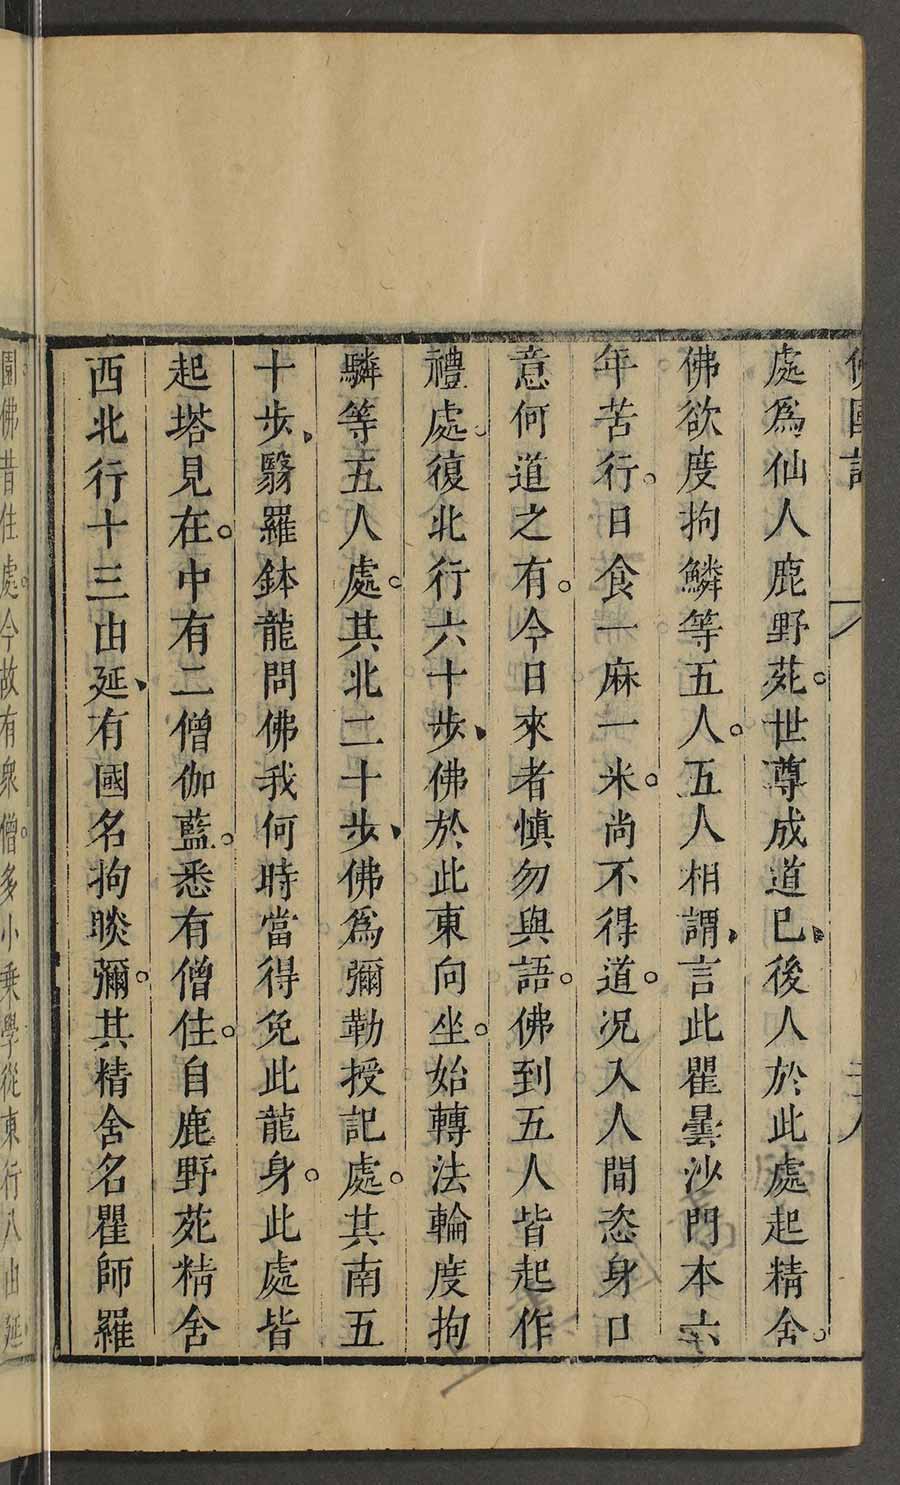 佛國記
處爲仙人鹿野苑。世尊成道已、後人於此處起精舍。
佛欲度拘鱗等五人。五人相謂、言此瞿曇沙門本六
年苦行。日食一麻一米。尚不得道。況入人間恣身口
意何道之有。今日來者慎勿與語。佛到五人皆起作
禮處。復北行六十步、佛於此東向坐。始轉法輪度拘
驎等五人處。其北二十步、佛爲彌勒授記處。其南五
十步、翳羅鉢龍問佛我何時當得免此龍身。此處皆
起塔見在。中有二僧伽藍。悉有僧住。自鹿野苑精舍
西北行十三由延、有國名拘睒彌。其精舍名瞿師羅
園佛昔住處。今故有衆僧。多小乘學從東行八由延